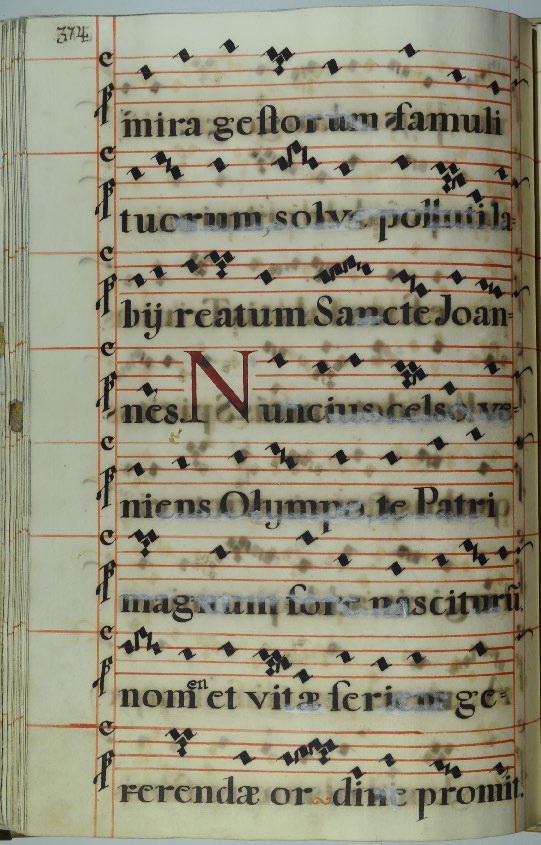 374
mira gestorum famuli
tuorum, solve polluti la=
bij reatum Sancte Joan=
nes. Nuncius celso ve=
niens Olympo, te Patri
magnum fore nasciturũ,
nomen et vitæ seriem ge=
rerendæ or~dine promit.